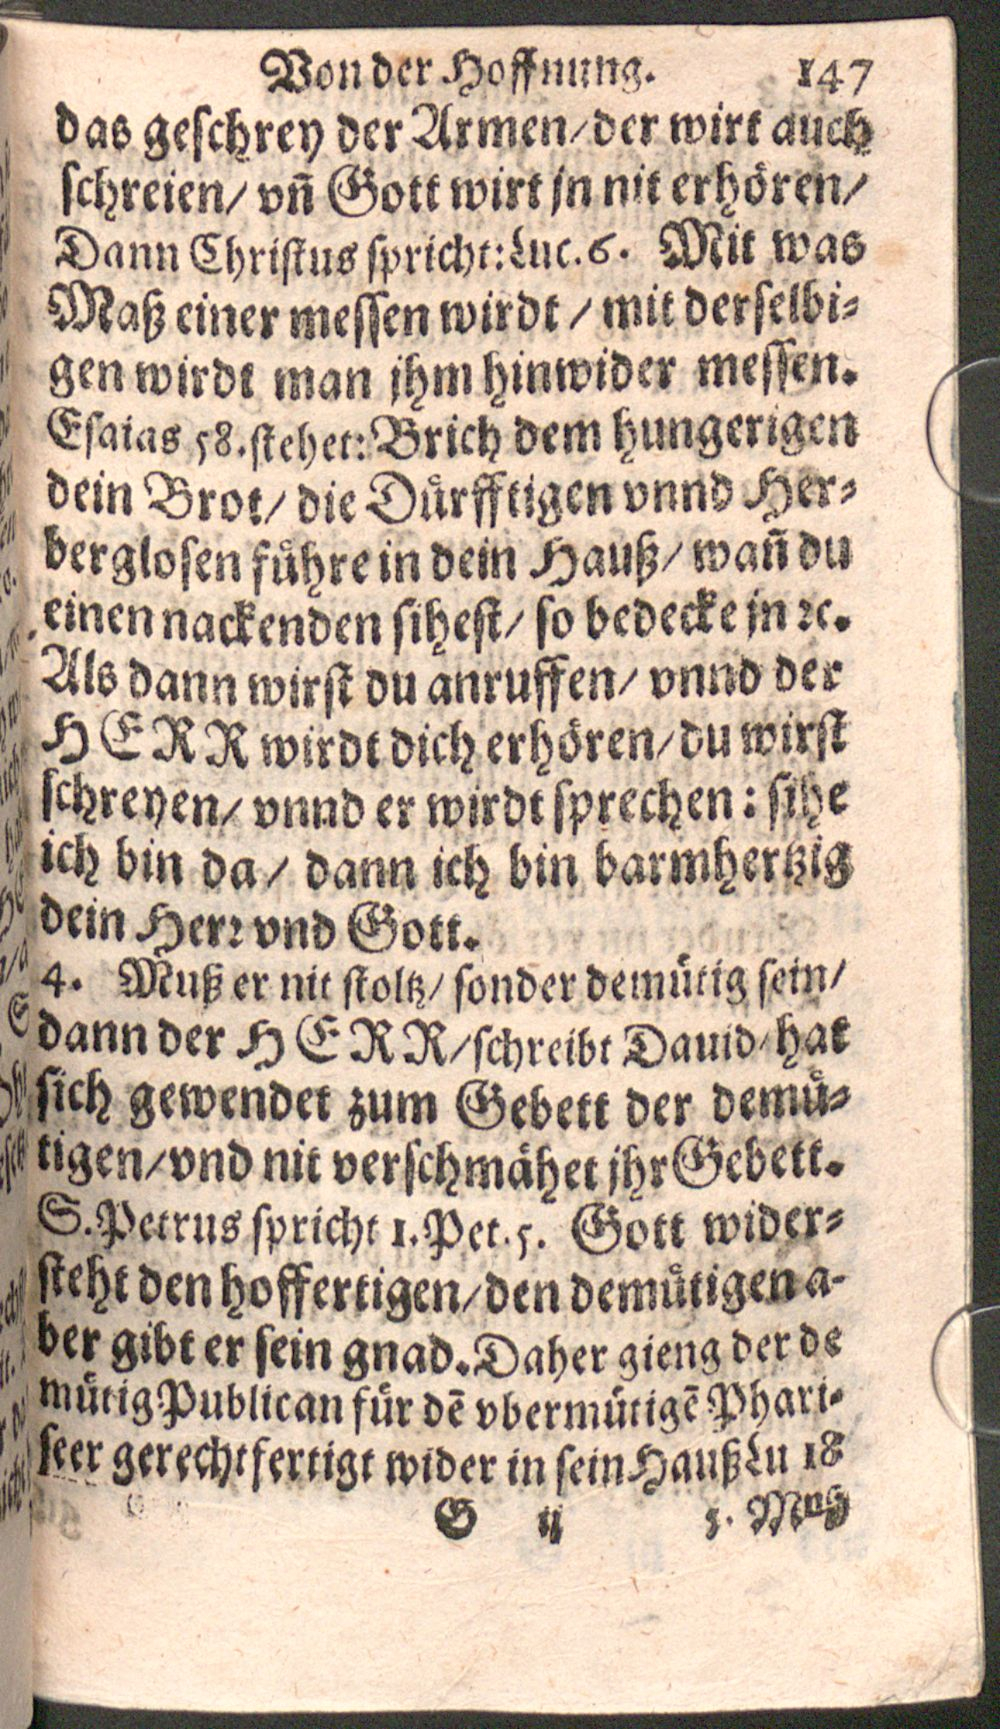 Von der Hoffnung. 147
das geschrey der Armen/ der wirt auch
schreien/ vñ Gott wirt jn nit erhören/
Dann Christus spricht: Luc. 6. Mit was
Maß einer messen wirdt / mit derselbi-
gen wirdt man jhm hinwider messen.
Esaias 58. stehet: Brich dem hungerigen
dein Brot/ die Dürfftigen vnnd Her-
berglosen führe in dein Hauß/ wañ du
einen nackenden sihest/ so bedecke jn ꝛc.
Als dann wirst du anruffen/ vnnd der
HERR wirdt dich erhören/ du wirst
schreyen/ vnnd er wirdt sprechen: sihe
ich bin da/ dann ich bin barmhertzig
dein Herꝛ vnd Gott.
4. Muß er nit stoltz/ sonder demütig sein/
dann der HERR/ schreibt Dauid/ hat
sich gewendet zum Gebett der demü-
tigen/ vnd nit verschmähet jhr Gebett.
S. Petrus spricht 1. Pet. 5. Gott wider-
steht den hoffertigen/ den demütigen a-
ber gibt er sein gnad. Daher gieng der de
mütig Publican für dē vbermütigē Phari-
seer gerechtfertigt wider in sein Hauß Lu 18
G ij 5. Muß